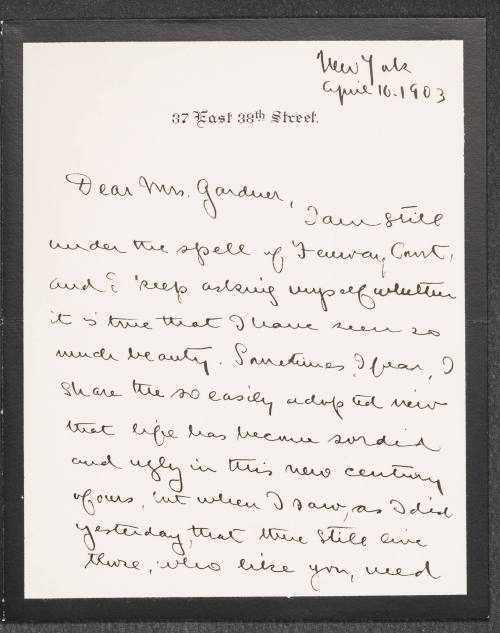 New York
April 10. 1903
37 East 38th Street.
Dear Mrs. Gardner,
I am still
under the spell of Fenway Court,
and I keep asking myself whether
it is true that I have seen so
much beauty. Sometimes, I fear, I
share the so easily adopted view
that life has become sordid
and ugly in this new century
of ours, but when I saw, as I did
yesterday, that there still live
those, who like you, need